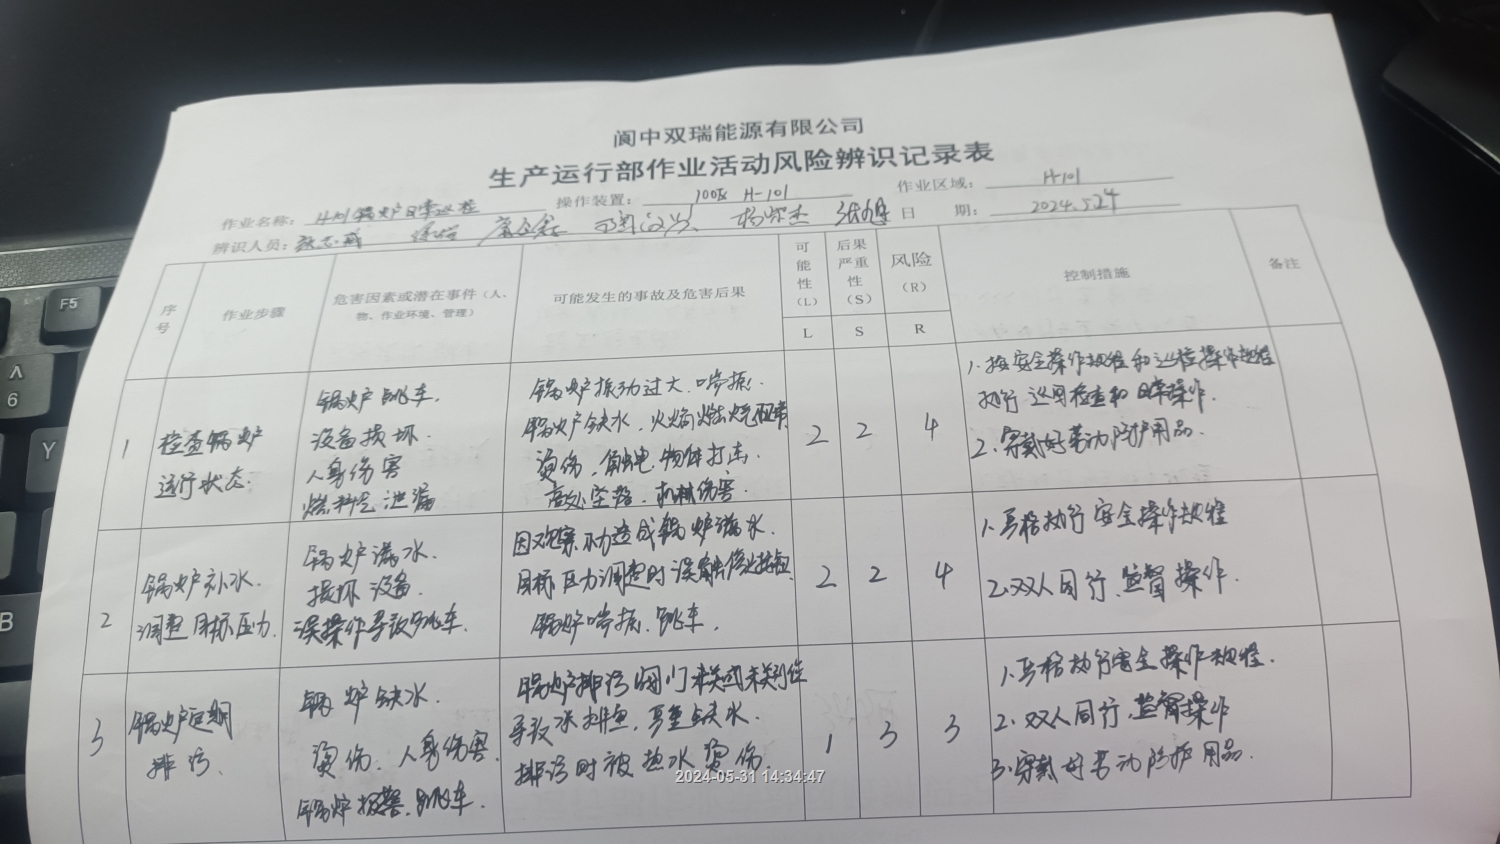 阆中双瑞能源有限公司
生产运行部作业活动风险辨识记录表
作业名称： 锅炉日常巡检 操作装置： 100区 H-101 作业区域： H-101
辨识人员： 日 期： 2024.5.24
序号 作业步骤 危害因素或潜在事件（人、物、作业环境、管理） 可能发生的事故及危害后果 可能性（L） 后果严重性（S） 风险（R） 控制措施 备注
L S R
1 检查锅炉运行状态. 锅炉跳车. 设备损坏. 人身伤害 燃料气泄漏 锅炉振动过大. 喘振. 锅炉缺水, 火焰燃烧 烫伤, 触电. 物体打击. 高处坠落. 机械伤害. 2 2 4 1. 按安全操作规程和巡检操作规程执行巡回检查和日常操作. 2. 穿戴好劳动防护用品.
2 锅炉补水. 调整目标压力. 锅炉满水. 损坏设备. 误操作导致跳车. 因观察不力造成锅炉满水. 目标压力调整时误触停止按钮. 锅炉喘振. 跳车. 2 2 4 1. 严格执行安全操作规程 2. 双人同行、监督操作.
3 锅炉定期排污、 锅炉缺水. 烫伤, 人身伤害. 锅炉报警. 跳车. 锅炉排污阀门未关或未关到位导致水排空, 严重缺水. 排污时被热水烫伤. 1 3 3 1. 严格执行安全操作规程. 2. 双人同行、监督操作 3. 穿戴好劳动防护用品.
2024-05-31 14:34:47
F5
6
Y
B